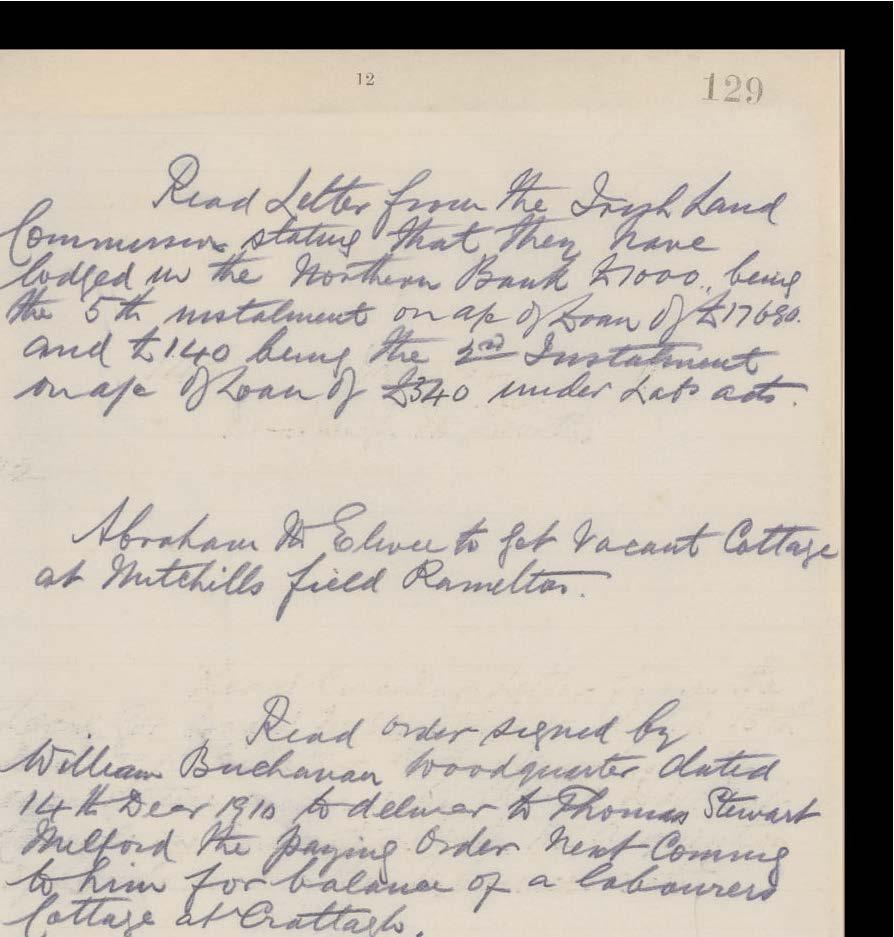 12
129
Read Letter from the Irish Land
Commission stating that they have
lodged in the Northern Bank £1000, being
the 5th instalment on a/c of Loan of £17680.
and £140 being the 2nd Instalment
on a/c of Loan of £340 under Labs acts.
Abraham Mc Elwee to get Vacant Cottage
at Mitchills field Ramelton.
Read order signed by
William Buchanan Woodquarter dated
14th Decr 1910 to deliver to Thomas Stewart
Milford the paying Order Next Coming
to him for balance of a labourers
Cottage at